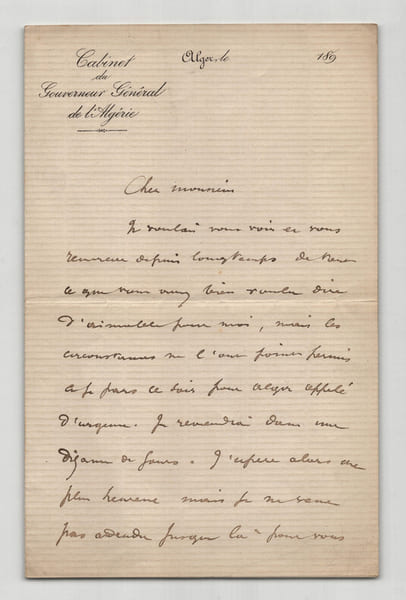 Cabinet
du
Gouverneur Général
de l'Algérie
Alger, le 189
Cher monsieur
Je voulais vous voir et vous
remercier depuis longtemps de tout
ce que vous avez bien voulu dire
d'aimable pour moi, mais les
circonstances ne l'ont point permis
et je pars ce soir pour Alger appelé
d'urgence. Je reviendrai dans une
dizaine de jours. J'espère alors être
plus heureux mais je ne veux
pas attendre jusque là pour vous